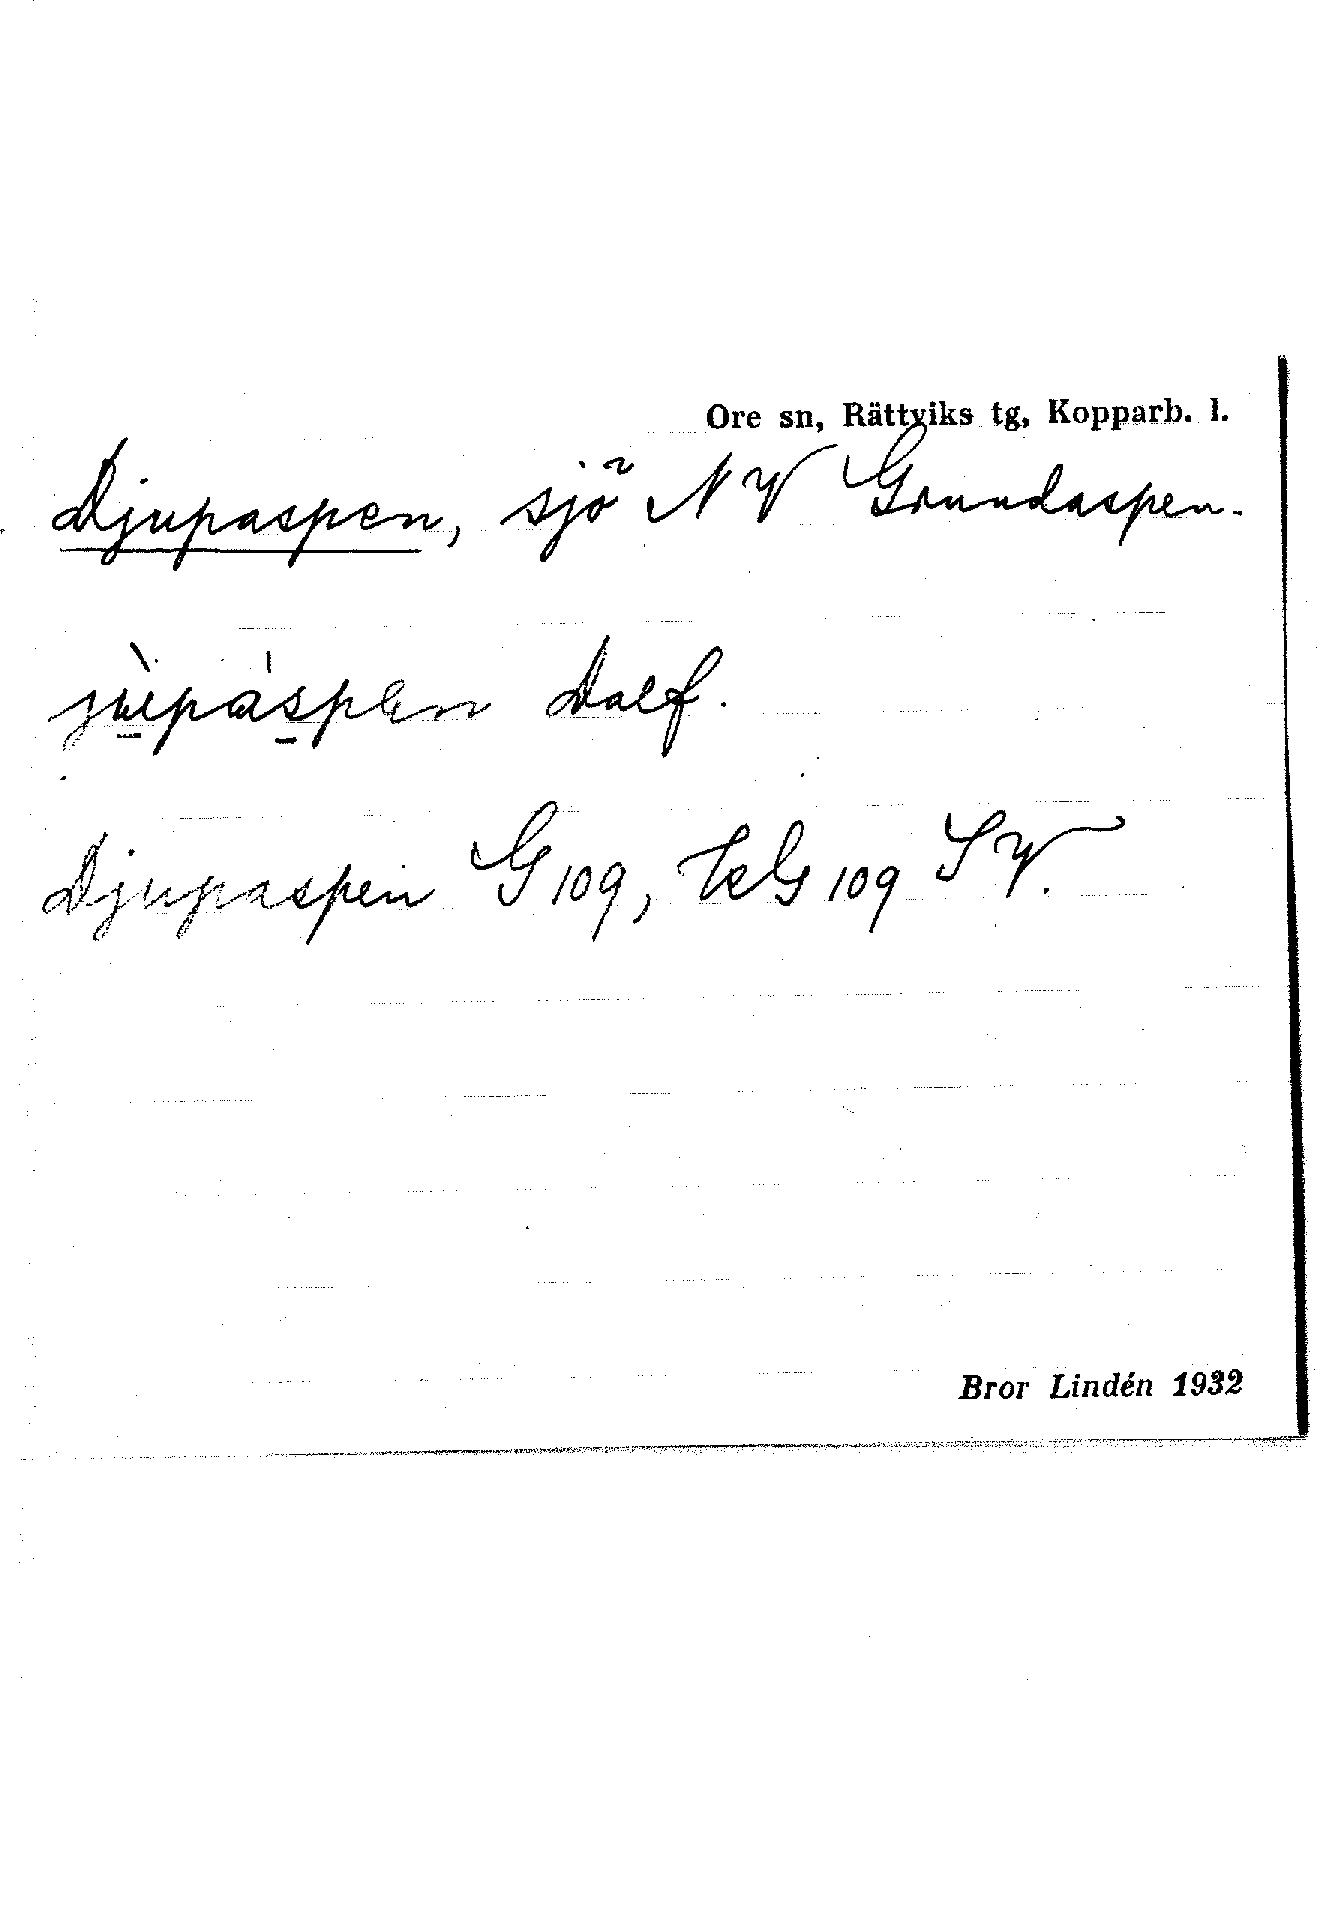 Ore sn, Rättviks tg, Kopparb. l.
Djupaspen, sjö NV Grundaspen.
Dalf.
Djupaspen G 109, EkG 109 SV.
Bror Lindén 1932